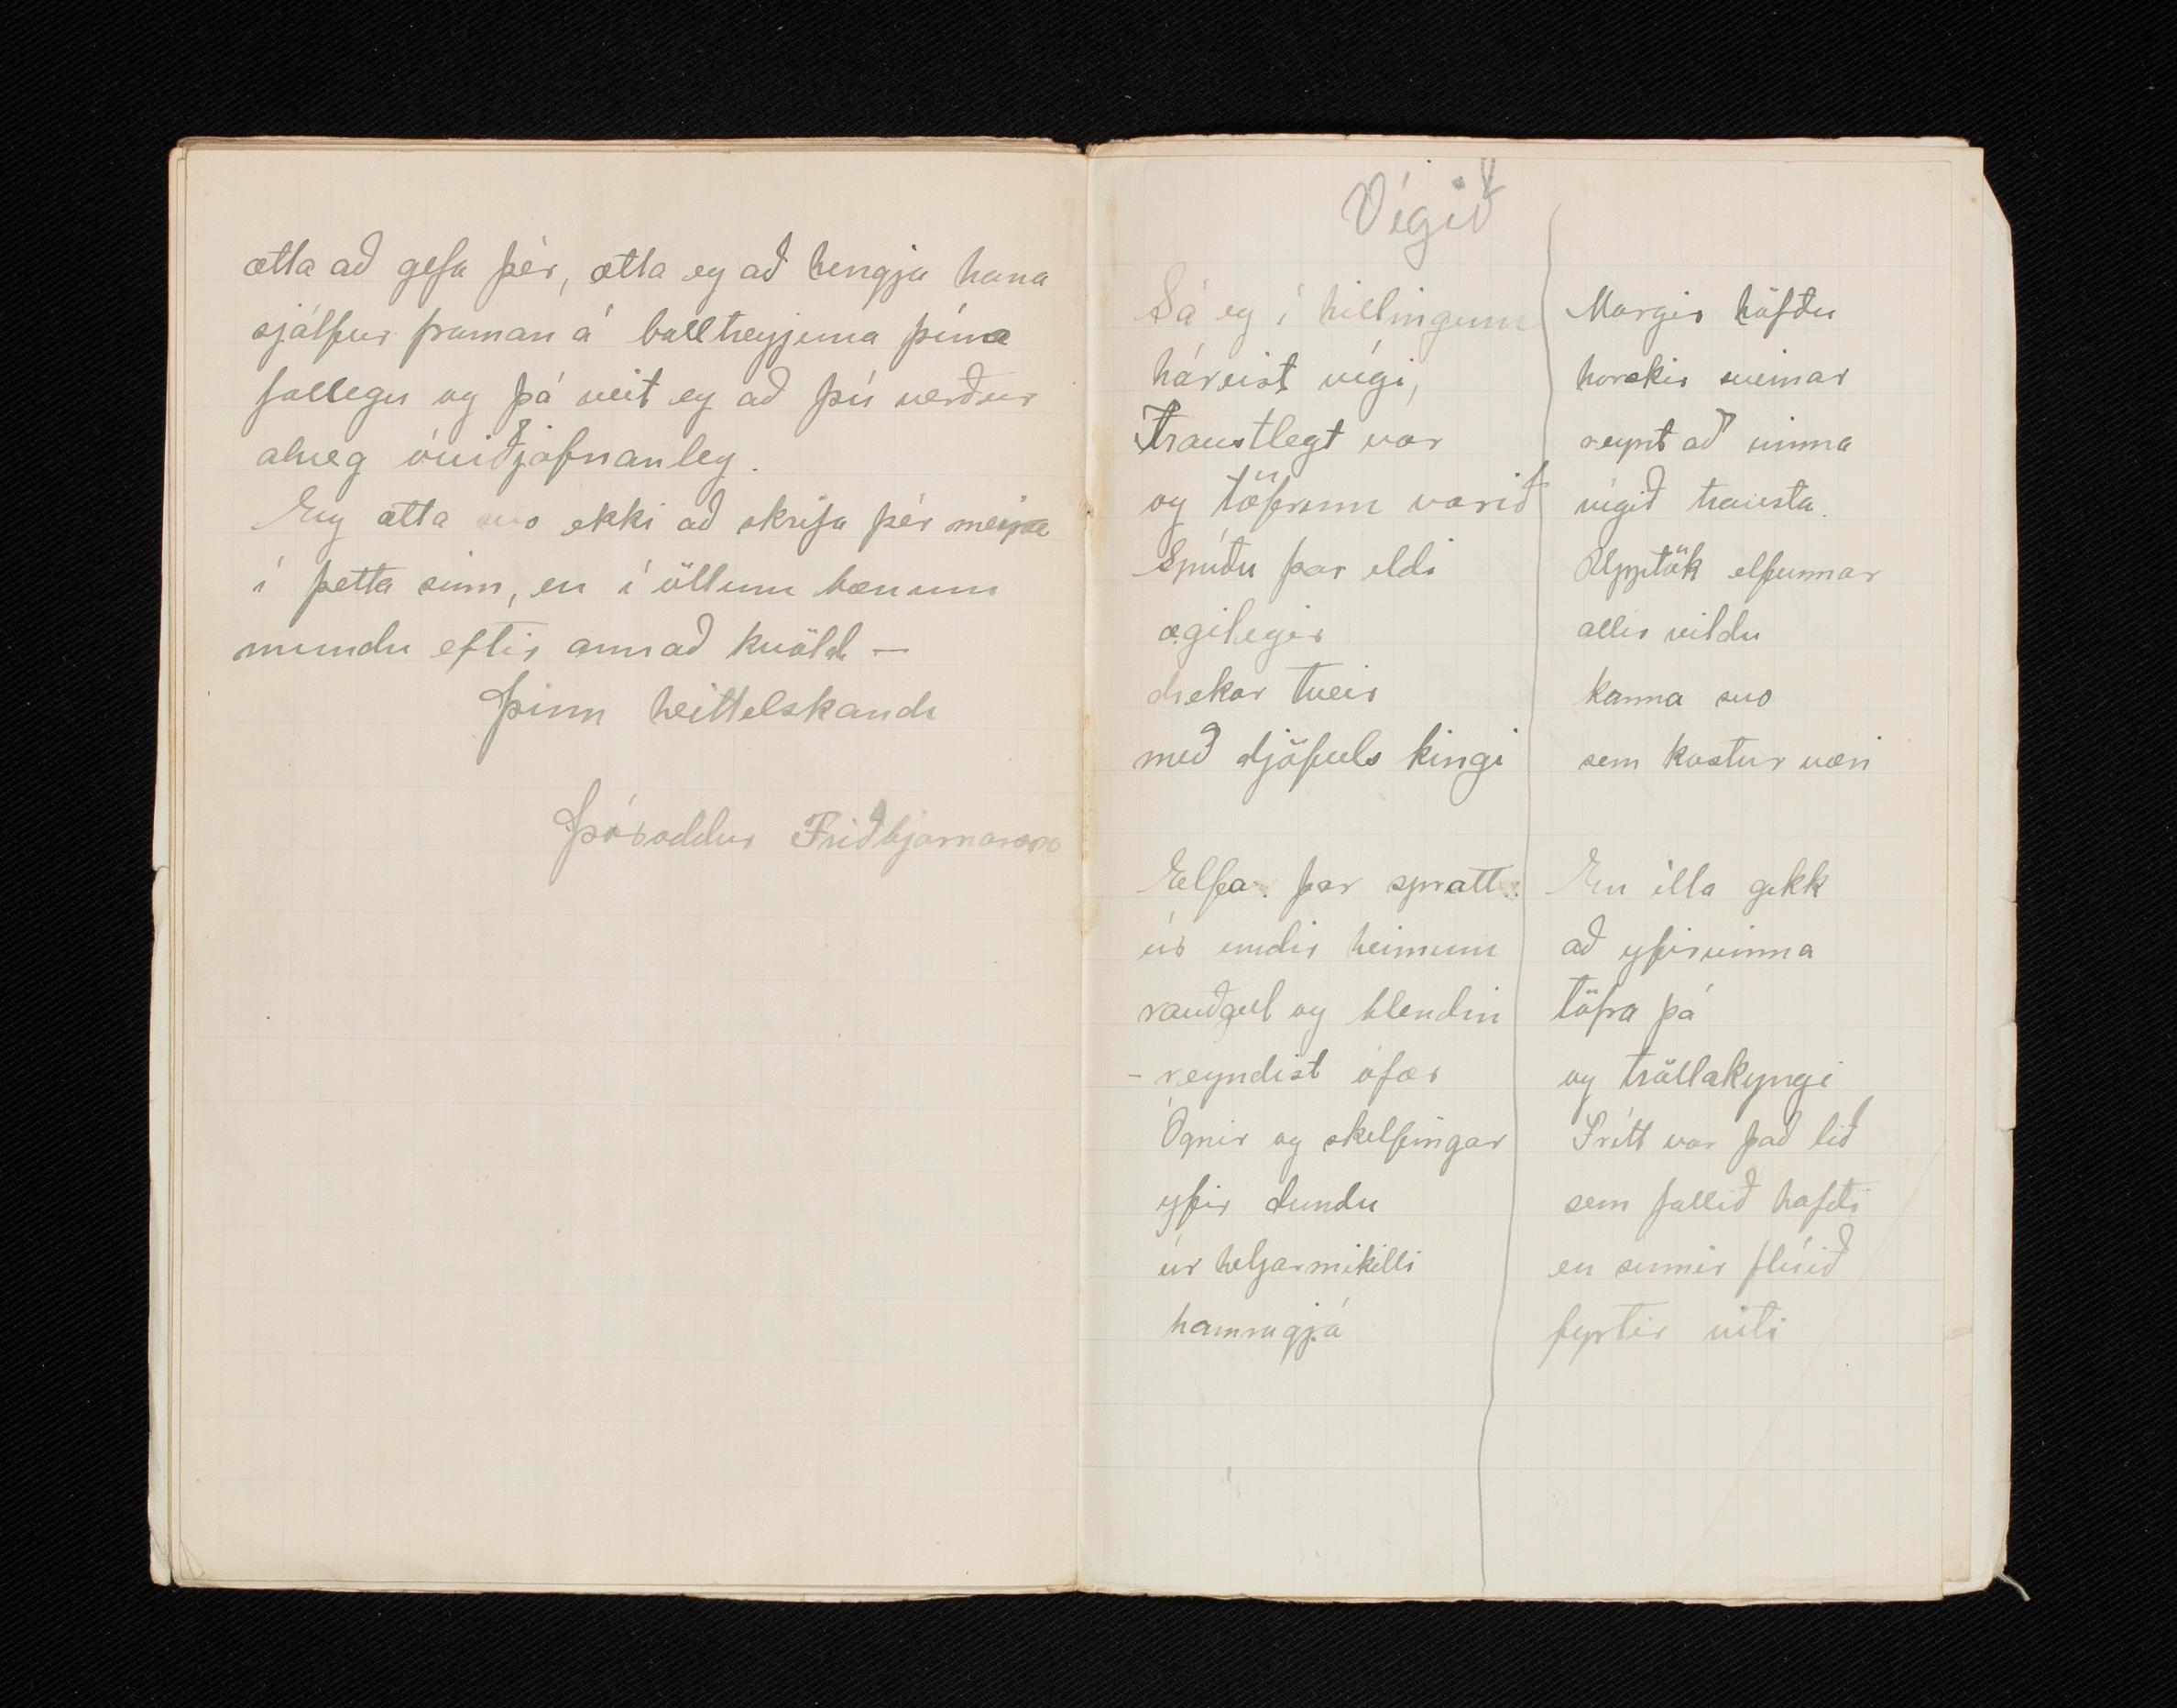 ætla að gefa þér, ætla eg að hengja hana
sjálfur framan á balltreyjuna þína
fallegu og þá veit eg að þú verður
alveg óviðjafnanleg.
Eg ætla svo ekki að skrifa þér meira
í þetta sinn, en í öllum bænum
mundu eftir annað kvöld –
Þinn heittelskandi
Þóroddur Friðbjarnarson
Vígið
Sá eg í hillingum
háreist vígi,
Traustlegt var
og töfrum varið
Spúðu þar eldi
ægilegir
drekar tveir
með djöfuls kingi
Elfa þar spratt
úr undir heimum
rauðgul og blendin
– reyndist ófær
Ógnir og skelfingar
yfir dundu
úr heljarmikilli
hamragjá
Margir höfðu
horskir sveinar
reynt að vinna
vígið trausta.
Upptök elfunnar
allir vildu
kanna svo
sem kostur væri
En illa gekk
að yfirvinna
töfra þá
og tröllakyngi
Frítt var það lið
sem fallið hafði
en sumir flúið
fyrtir viti